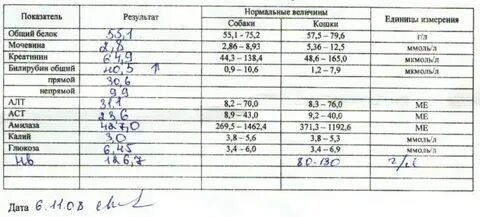 Показатель Результат Нормальные величины Единицы измерения
Собаки Кошки
Общий белок 55,1 55,1 - 75,2 57,5 – 79,6 г/л
Мочевина 2,8 2,86 – 8,93 5,36 – 12,5 ммоль/л
Креатинин 64,9 44,3 – 138,4 48,6 – 165,0 мкмоль/л
Билирубин общий 40,5 ↑ 0,9 – 10,6 1,2 – 7,9 мкмоль/л
прямой 30,6
непрямой 9,9
АЛТ 31,1 8,2 – 70,0 8,3 – 76,0 МЕ
АСТ 23,6 8,9 – 43,0 9,2 – 40,0 МЕ
Амилаза 427,0 269,5 – 1462,4 371,3 – 1192,6 МЕ
Калий 3,0 3,8 – 5,6 3,8 – 5,3 ммоль/л
Глюкоза 6,45 3,4 – 6,0 3,4 – 6,9 ммоль/л
Hb 126,7 80-130 г/л
Дата 6.11.08